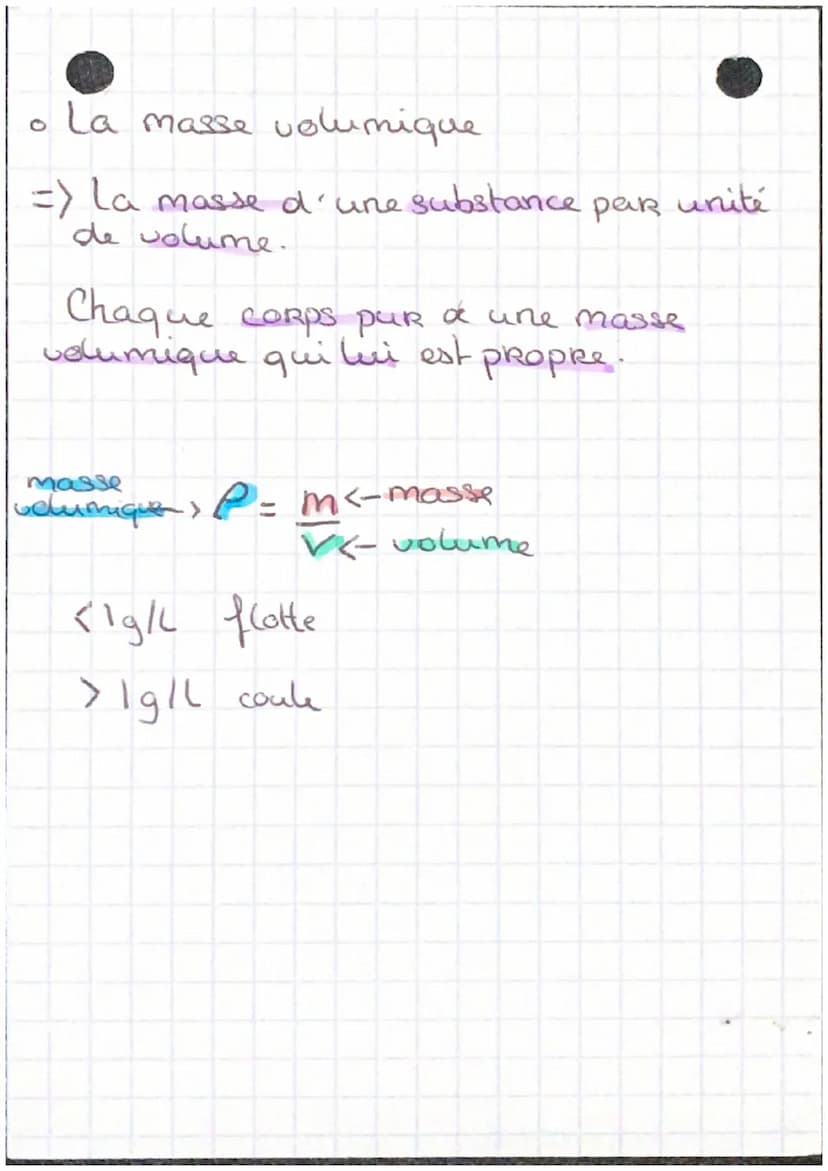 o La masse volumique
=> La masse d'une substance par unité
de volume.
Chaque corps pur a une masse
volumique qui lui est propre.
masse
volumique -> ρ = m <- masse
V <- volume
<1g/L flotte
>1g/L coule